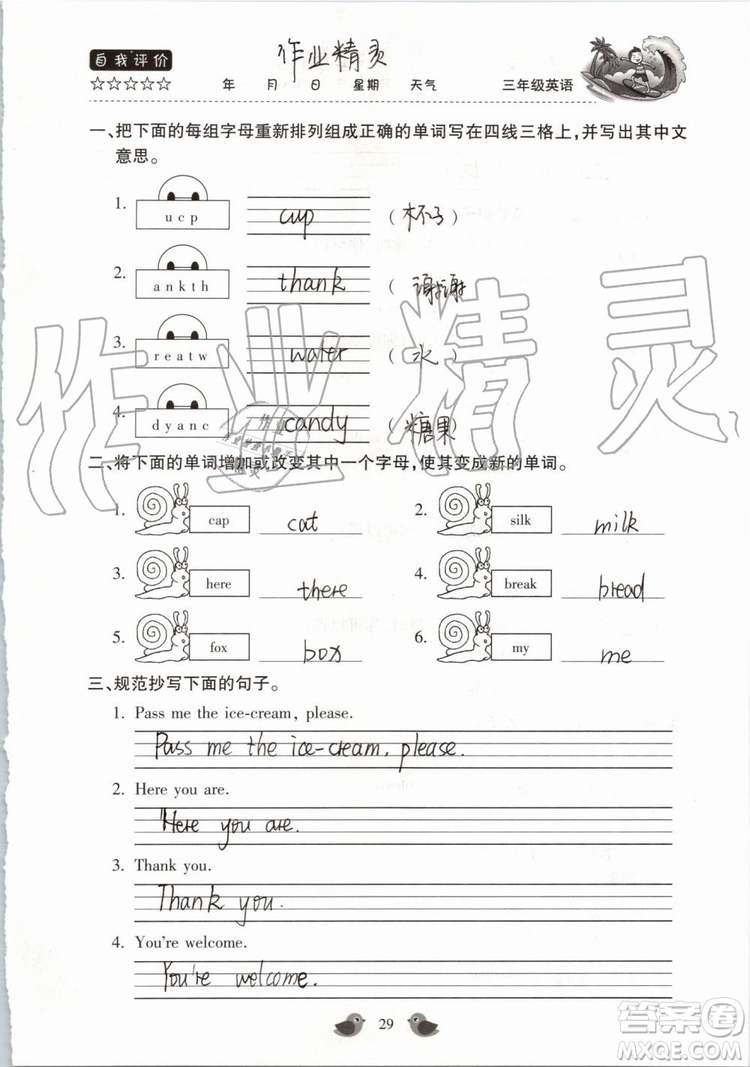 自我评价
作业精灵
☆☆☆☆☆ 年 月 日 星期 天气 三年级英语
一、把下面的每组字母重新排列组成正确的单词写在四线三格上,并写出其中文
意思。
1. ucp cup (杯子)
2. ankth thank (谢谢)
3. reatw water (水)
4. dyanc candy (糖果)
作业精灵
二、将下面的单词增加或改变其中一个字母,使其变成新的单词。
1. cap cat 2. silk milk
3. here there 4. break bread
5. fox box 6. my me
三、规范抄写下面的句子。
1. Pass me the ice-cream, please.
Pass me the ice-cream, please.
2. Here you are.
Here you are.
3. Thank you.
Thank you.
4. You're welcome.
You're welcome.
29
答案圈